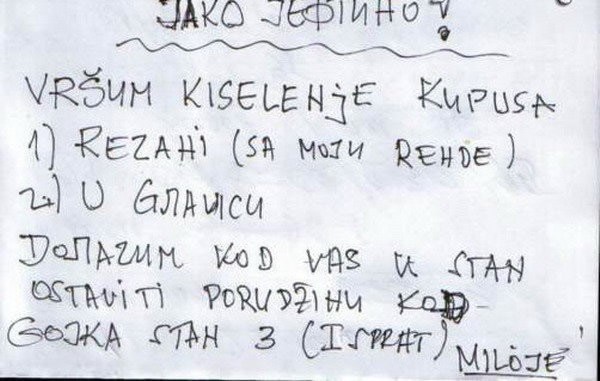 JAKO ЈЕФТИНО!
VRŠUM KISELENjE KUPUSA
1) REZAHI (SA MOJU REHDE)
2) U GЛAVICU
DOЛAZUM KOD VAS U STAN
OSTAVITI PORUDŽIHU KOD
GOJKA STAN 3 (ISPRAT)
MILOJE